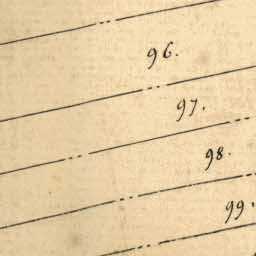 96.
97.
98.
99.